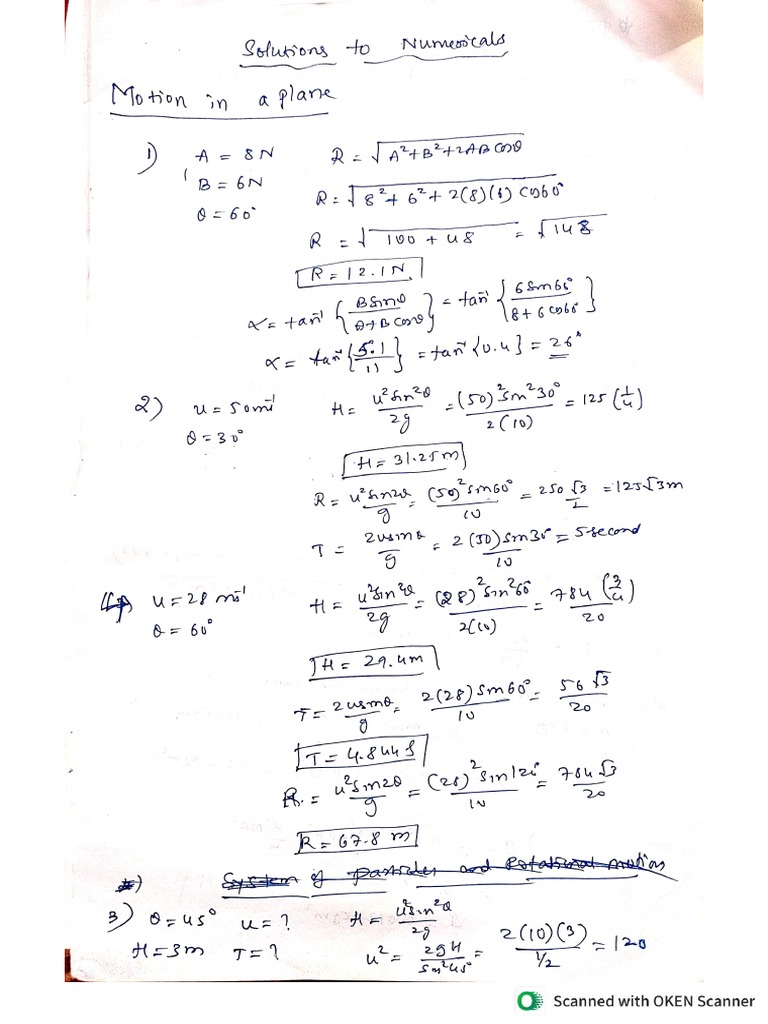 Solutions to Numericals
Motion in a plane
1) A = 8N R = √A²+B²+2ABcosθ
B = 6N R = √8²+6²+2(8)(6) cos60°
θ = 60°
R = √100 + 48 = √148
R = 12.1N
α = tan⁻¹ {Bsinθ / A+Bcosθ} = tan⁻¹ {6 sin60° / 8+6 cos60°}
α = tan⁻¹ {5.1 / 11} = tan⁻¹ {0.4} = 26°
2) u = 50 ms⁻¹ H = u²sin²θ / 2g = (50)² sin²30° / 2(10) = 125 (1/4)
θ = 30°
H = 31.25 m
R = u²sin2θ / g = (50)² sin60° / 10 = 250 √3/2 = 125√3 m
T = 2usinθ / g = 2(50) sin30° / 10 = 5 second
4) u = 28 ms⁻¹ H = u²sin²θ / 2g = (28)² sin²60° / 2(10) = 784 (3/4) / 20
θ = 60°
H = 29.4m
T = 2usinθ / g = 2(28) sin60° / 10 = 56 √3 / 20
T = 4.844 s
R = u²sin2θ / g = (28)² sin120° / 10 = 784 √3 / 20
R = 67.8 m
System of particles and Rotational motion
3) θ = 45° u = ? H = u²sin²θ / 2g
H = 3m T = ? u² = 2gH / sin²45° = 2(10)(3) / 1/2 = 120
Scanned with OKEN Scanner